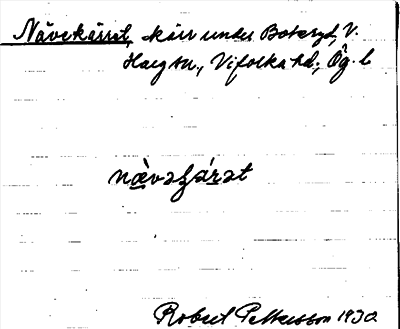 Nävekärret, kärr under Boteryd, V.
Harg sn., Vifolka hd., Ög. l.
nävəʃärət
Robert Pettersson 1930